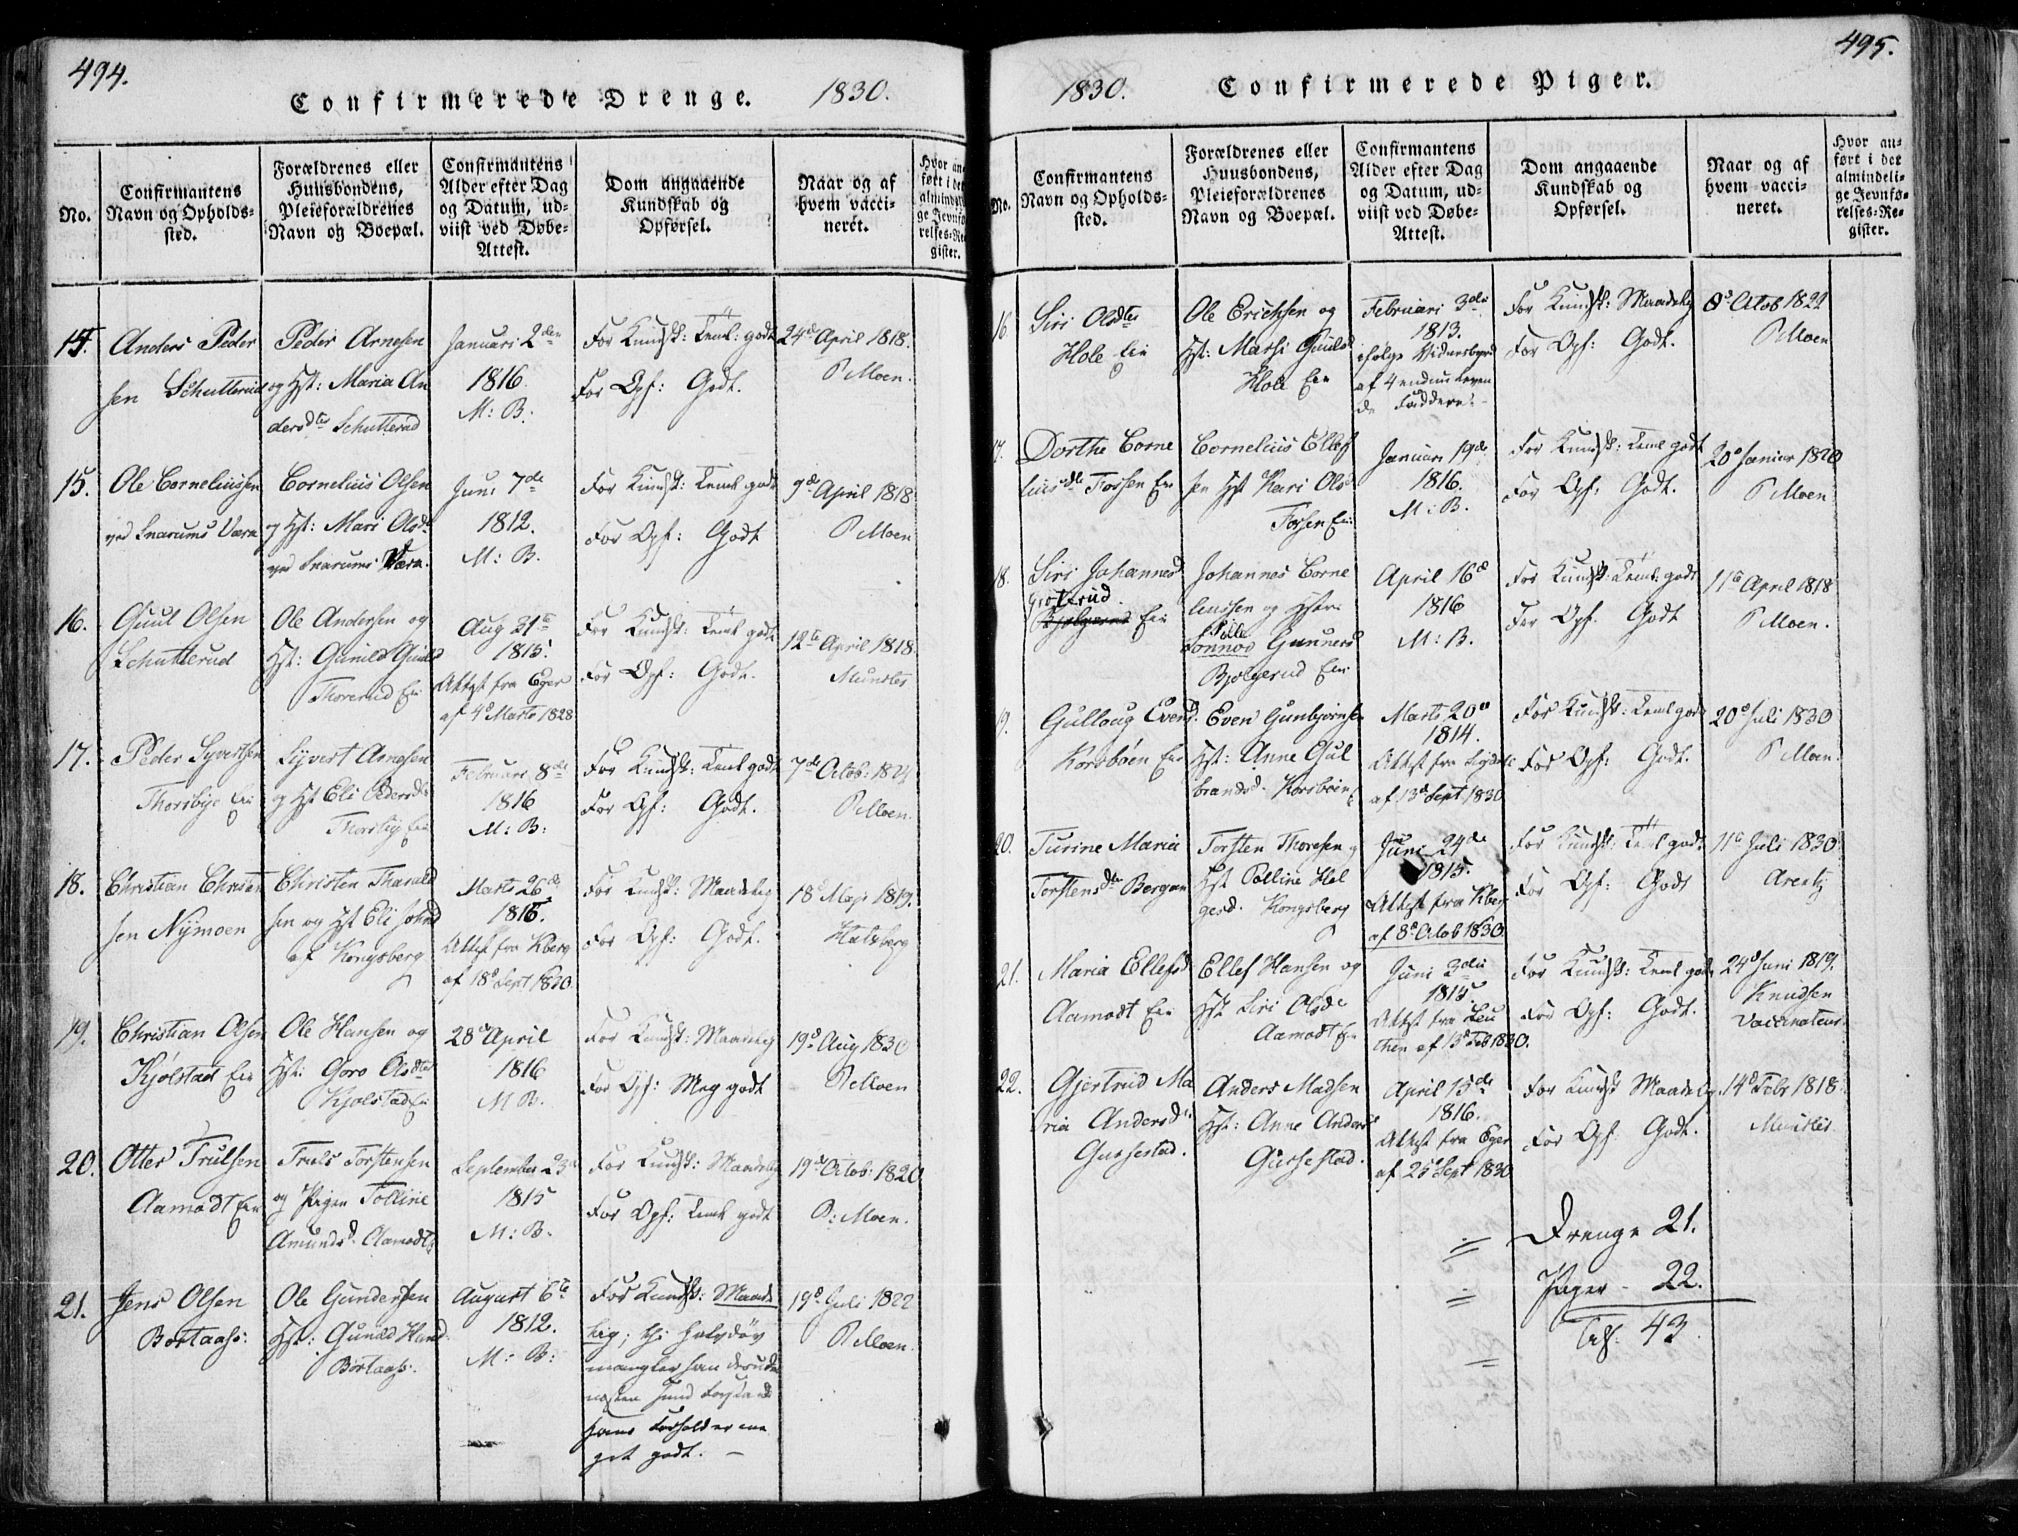 494.
Confirmerede Drenge. 1830.
No.
Confirmantens Navn og Opholds-sted.
Forældrenes eller Huusbondens, Pleieforældrenes Navn og Boepæl.
Confirmantens Alder efter Dag og Datum, ud-viist ved Døbe-Attest.
Dom angaaende Kundskab og Opførsel.
Naar og af hvem vacci-neret.
Hvor an-ført i det almindeli-ge Jevnfø-relses-Re-gister.
Anders Peder
sen Schutterud
Peder Arnesen
og Hst: Maria An
dersdtr Schutterud
Januari 2den
1816.
M: B:
For Kundsk: Teml: godt
For Opf: Godt.
24de April 1818.
P Moen.
15.
Ole Corneliussen
ved Snarums Værk
Cornelius Olsen
og Hst: Mari Olsdr
ved Snarums Værk.
Juni 7de
1812.
M: B.
For Kundsk: Teml godt
For Opf: Godt
9de April 1818
P Moen
16.
Guul Olsen
Schutterud
Ole Andersen og
Hst: Gunild Guuls
Thorerud Eie
Aug 31te
1815.
Attest fra Eger
af 4de Marts 1828
For Kundsk: Teml godt
For Opf: Godt.
12te April 1818.
Munster
17.
Peder Syvertsen
Thorsbye Eie
Syvert Arnesen
og Hst Eli Pedersdr
Thorsby Eie
Februar 8de
1816
M: B:
For Kundsk: Teml godt
For Opf: Godt.
7de Octob: 1824
P Moen.
18.
Christian Christen
sen Nymoen
Christen Tharald
sen og Hst Eli Johnd
af Kongsberg
Marts 26de
1816.
Attest fra Kberg
af 18d Sept 1830
For Kundsk: Maadelig
For Opf: Godt.
18de Maji 1819.
Hatzberg
19.
Christian Olsen
Kjølstad Eie
Ole Hansen og
Hst: Goro Olsdtr
Kjølstad Eie
28de April
1816
M B.
For Kundsk: Maadelig
For Opf: Meg godt
19d Aug 1830
P Moen
20.
Otter Trulsen
Aamodt Eie
Truls Torstensen
og Pigen Tolline
Amundsd. Aamodt
September 23d
1815
M: B.
For Kundsk: Maadelig
For Opf: Teml godt
19de Octob: 1820
P: Moen.
21.
Jens Olsen
Bortaass:
Ole Gundersen
Hst: Gunild Hansd
Bortaass.
August 6te
1812.
M: B:
For Kundsk: Maade
lig; thi halvdøv
mangler han desuden
næsten sund Forstand
hans Forhold er me
get godt. —
19d Juli 1822
P Moen.
495.
1830. Confirmerede Piger.
No.
Confirmantens Navn og Opholds-sted.
Forældrenes eller Huusbondens, Pleieforældrenes Navn og Boepæl.
Confirmantens Alder efter Dag og Datum, ud-viist ved Døbe-Attest.
Dom angaaende Kundskab og Opførsel.
Naar og af hvem vacci-neret.
Hvor an-ført i det almindeli-ge Jevnfø-relses-Re-gister.
16
Siri Olsdtr
Hole Eie
Ole Erichsen og
Hst: Marthi Guulsd
Hole Eie
Februari 3die
1813.
ifølge Vidnesbyrd
af 4 endnu leven
de Faddere
For Kundsk: Maadelig
For Opf: Godt.
8d Octob 1822
P Moen
17.
Dorthe Corne
liusdtr Fossen Eie
Cornelius Ellef
sen Hst Kari Olsd
Fossen Eie
Januar 19de
1816.
M: B.
For Kundsk: Teml godt
For Opf: Godt.
20d Januar 1820
P Moen
18.
Siri Johannesd
Groterud
Eie
Johannes Corne
liussen og Hstr:
Tolle
Tonnov Gunnersd
Bjølgerud Eie
April 16d
1816
M: B.
For Kundsk: Teml: godt
For Opf. Godt
11te April 1818
P Moen.
19.
Gulloug Evensd
Korsbøen Eie
Even Gunbjørnsen
Hst: Anne Gul
brandsd. Korsbøen
Marts 20de
1814.
Attest fra Sigdal
af 13d Sept 1830
For Kundsk: Teml godt
For Opf: Godt.
20d Juli 1830
P Moen.
20.
Turine Maria
Torstensdtr Bergan
Torsten Thoresen og
Hst Polline Hel
gesd. Kongsberg
Juni 24de
1815.
Attest fra Kberg
af 8d Octob 1830
For Kundsk: Teml godt
For Opf: Godt
11te Juli 1830
Arentz
21.
Maria Ellefsd
Aamodt Eie
Ellef Hansen og
Hst Siri Olsdr
Aamodt Eie
Juni 3die
1815.
Attest fra Leu
then af 13d Feb 1830.
For Kundsk: Teml godt
For Opf: Godt.
24d Juni 1819.
Knudsen
Vaccinateur
22.
Gjertrud Ma
ria Andersdr
Gussestad.
Anders Madsen
Hst: Anne Andersd
Gussestad.
April 15de
1816.
Attest fra Eger
af 25d Sept 1830
For Kundsk Maadelig
For Opf: Godt.
14d Febr 1818
Munster.
Drenge 21.
Piger - 22.
Tils. 43.